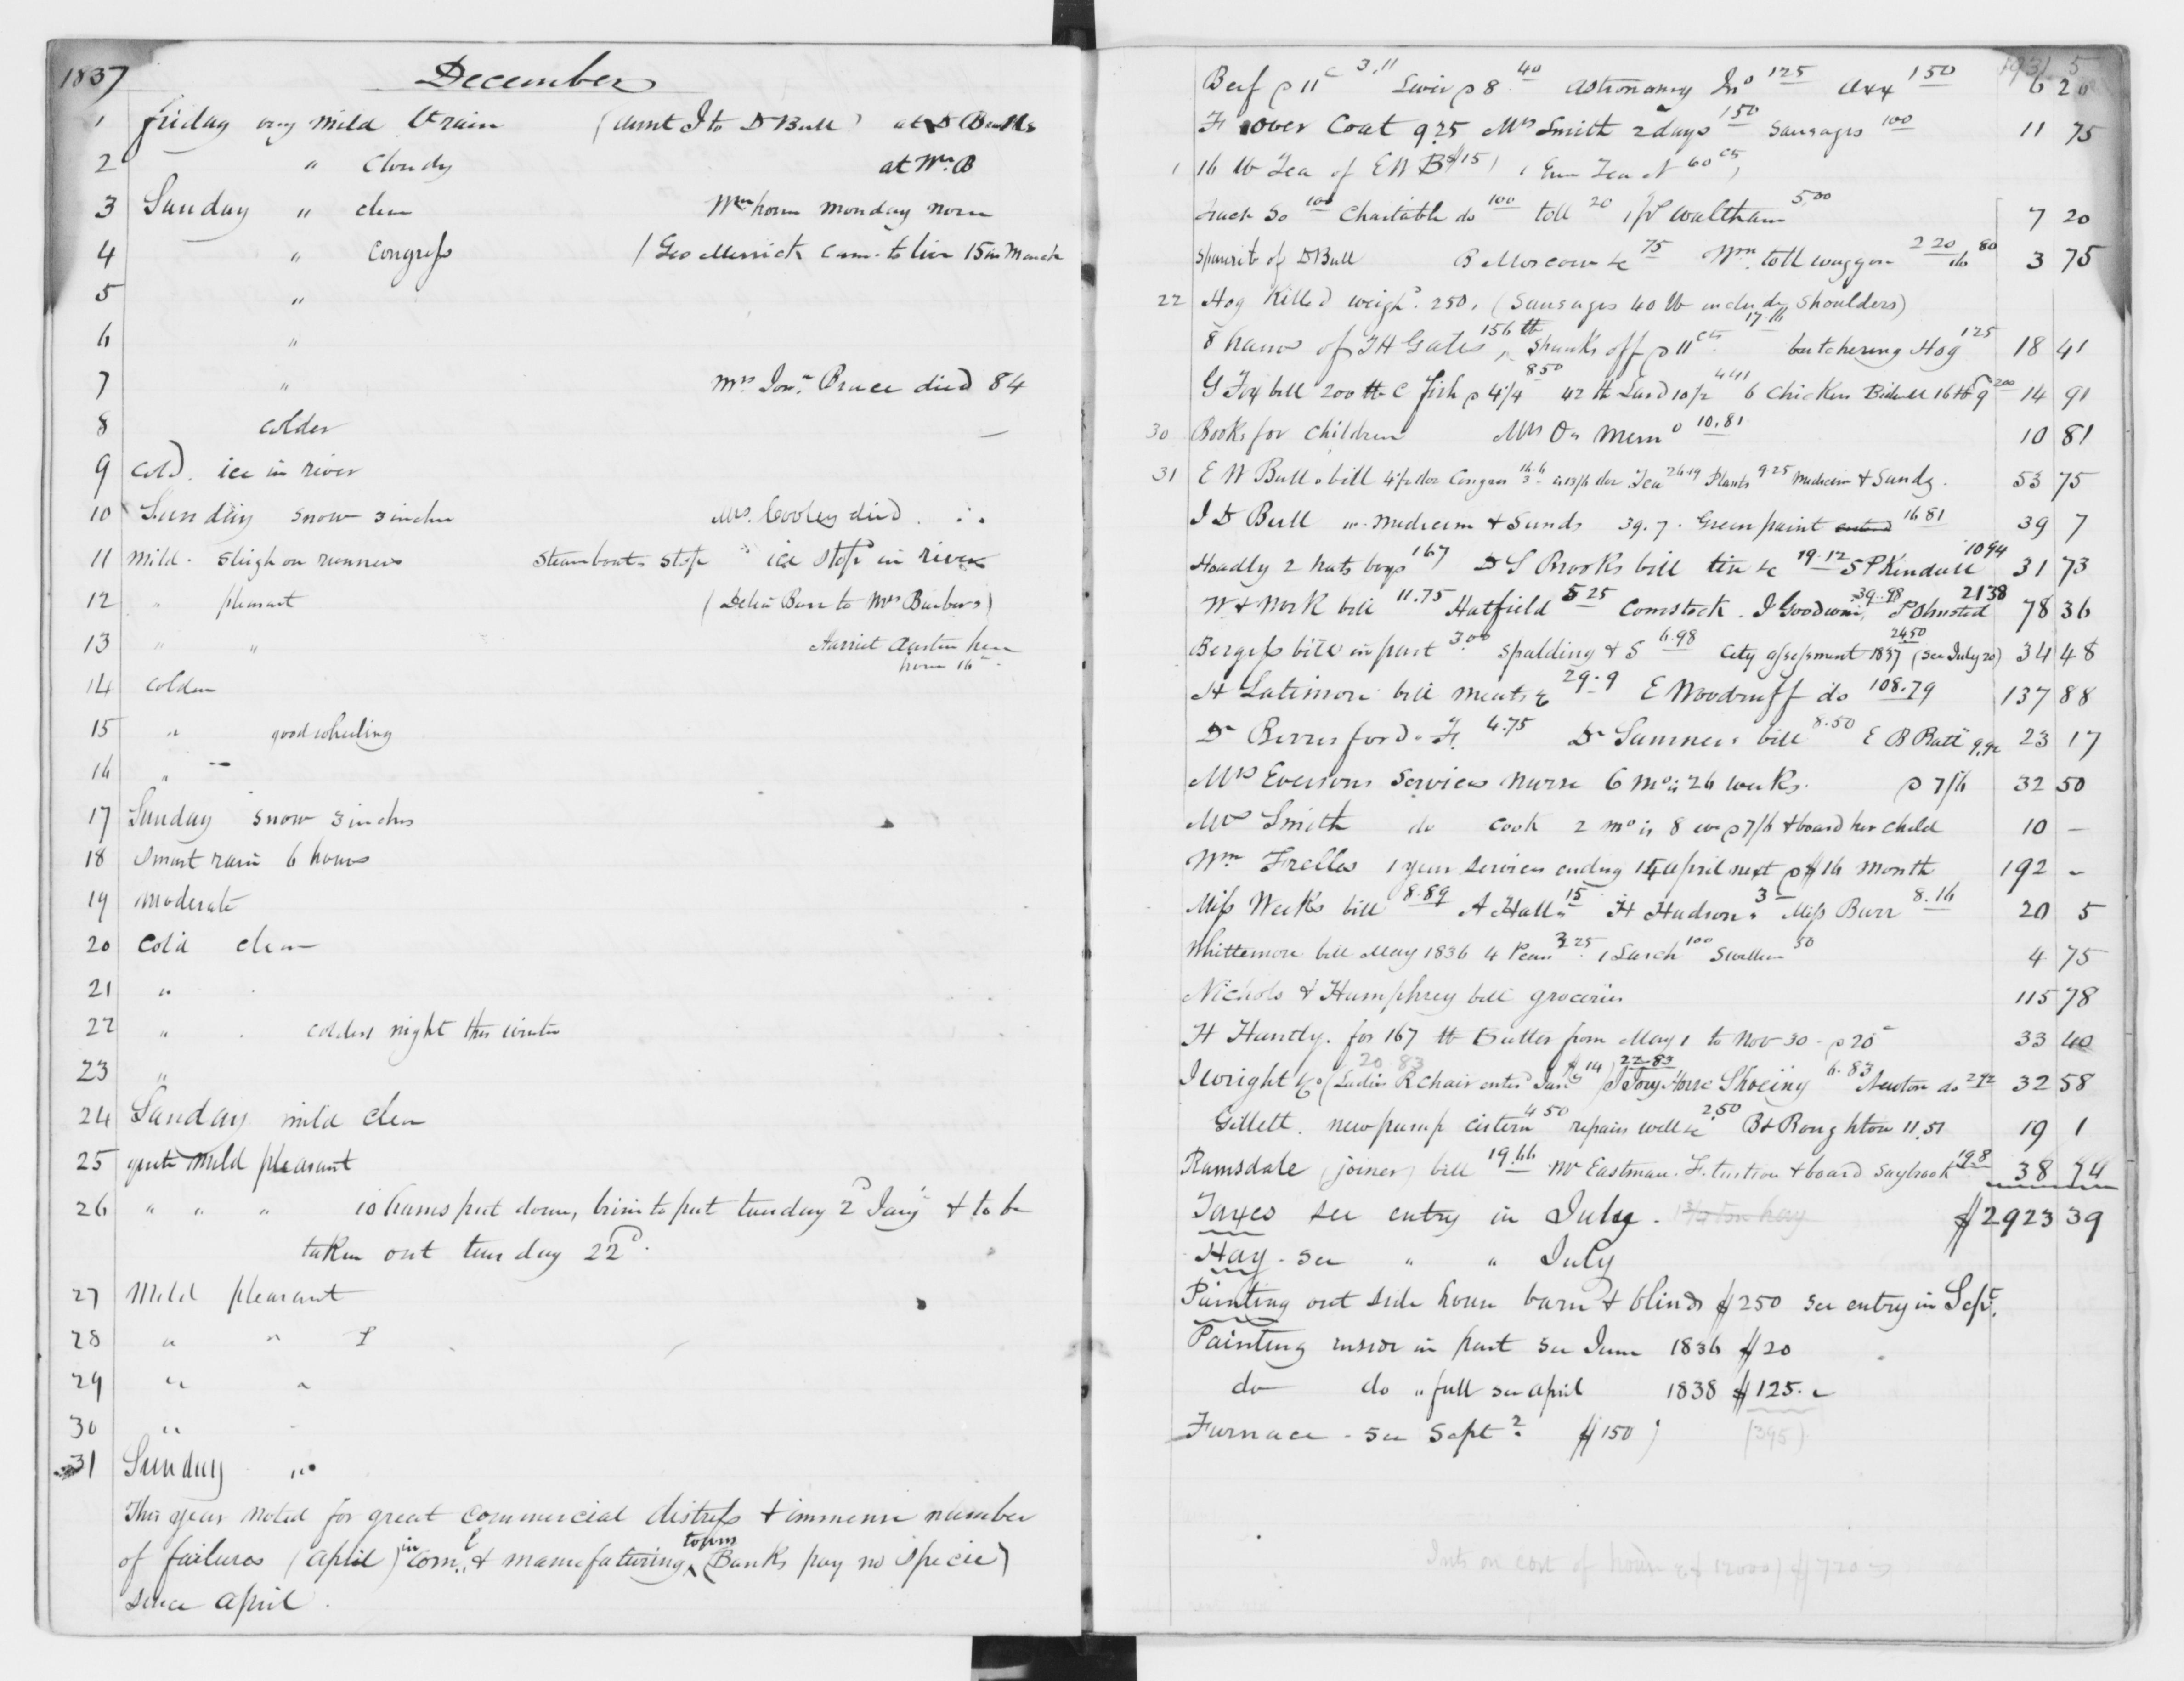 1837 December
1 friday very mild & rain (Aunt I to D Bull) at D Bulls
2 " Cloudy at Wm B
3 Sunday " clear Wm home monday noon
4 " Congress / Geo Merrick came to live 15 in March
5 "
6 "
7 " Mrs Jona Brace died 84
8 colder
9 cold. ice in river
10 Sunday snow 3 inches Mrs. Cooley died
11 mild. sleigh on runners Steamboats stop ice stops in river
12 " pleasant ( to Mrs Barbers)
13 " " Harriet Austin here
home 16
14 colder
15 " good wheeling
16 "
17 Sunday snow 3 inches
18 Smart rain 6 hours
19 moderate
20 Cold clear
21 "
22 " coldest night this winter
23 "
24 Sunday mild clear
25 quite mild pleasant
26 " " " 10 hams put down, brine to put tuesday 2d Jany & to be
taken out tuesday 22d.
27 Mild pleasant
28 " "
29 " "
30 "
31 Sunday "
This year noted for great commercial distress & immense number
of failures (April) in coml. & manufaturing towns (Banks pay no specie)
since April.
Beef @ 11c 3.11 40 Astronomy 125 1 50 6 20
F over Coat 9.25 Mrs Smith 2 days 150 Sausages 100 11 75
1 16 lb Tea of E W B $15 60 cts
100 Charitable do 100 toll 20 Waltham 5.00 7 20
Sparerib of D Bull 75 Wm toll waggon 2 20 do 80 3 75
22 Hog killed weighd. 250, (Sausages 40 lb includg shoulders)
8 hams of T H Gates 156 lb shanks off @ 11 cts 17.16 butchering Hog 125 18 41
G Fox bill 200 lb C fish @ 4/4 8 50 42 lb Lard 10 1/2 4 41 6 Chickens 16 lb 9 200 14 91
30 Books for children 10.81 10 81
31 E W Bulls bill Congress Tea Plants 9 25 Medicine & Sundy. 53 75
I D Bull Medicine & Sunds 39.7. Green paint 16 81 39 7
Hoadly 2 hats boys 167 D S Brooks bill tin &c 19.12 S P Kendall 10 94 31 73
W & bill 11.75 Hatfield 5 25 Comstock. I Goodwin 39.98 P Olmsted 21 38 78 36
Bergess bill in part 3.00 Spalding & S 6.98 City assessment 1837 24 50 (see July 20) 34 48
H Latimore bill meats & 29.9 E Woodruff do 108.79 137 88
Dr Berresford. F. 4.75 Dr Sumners bill 8.50 E B Pratt 9.92 23 17
Mrs Eversons Services nurse 6 mo is 26 weeks. @ 7/6 32 50
Mrs Smith do Cook 2 mo is 8 we @ 7/6 & board her child 10 –
Wm Freller 1 year services ending 15 April next @ $16 month 192 –
Miss Weeks bill 8.89 A Hall " 15 H Hudson " 3 Miss Burr 8.16 20 5
Whittemore bill May 1836 4 Pears 3 25 1 Larch 100 50 4 75
Nichols & Humphrey bill groceries 115 78
H Huntly. for 167 lb Butter from May 1 to Nov 30 @ 20c 33 40
20 83
I Wright &Co (Ladies R chair enterd Jany $14) 22.83 Horse Shoeing 6.83 Newton do 2 92 32 58
Gillett. new pump cistern 4 50 repairs well &c 2.50 B & Roughton 11.51 19 1
Ramsdale (joiner) bill 19.66 Mr Eastman. F. tuition & board Saybrook 19.8 38 74
Taxes see entry in July. $2923 39
Hay. see " " July
Painting out side house barn & blinds $250 see entry in Sept.
Painting inside in part see June 1836 $20
do do " full see April 1838 $125.
Furnace - see Sept. $150) (395)
Ints on cost of house of 12000) $720